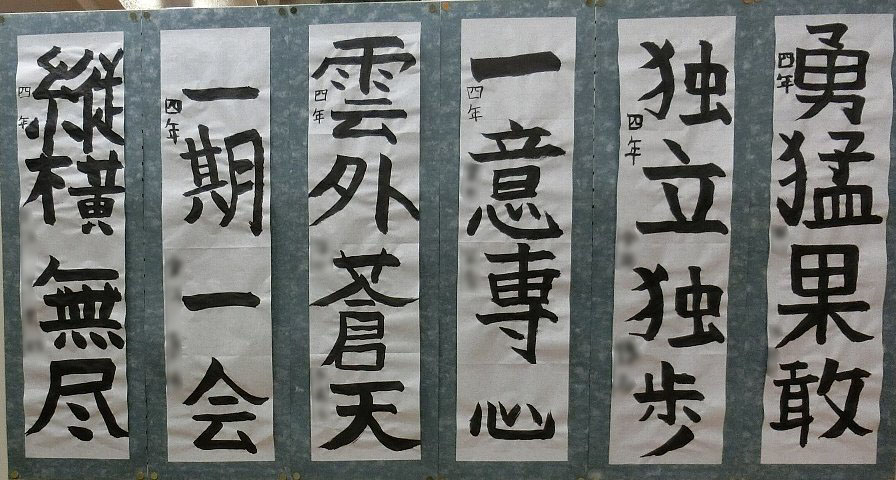 勇猛果敢
四年
独立独歩
四年
一意専心
四年
雲外蒼天
四年
一期一会
四年
縦横無尽
四年